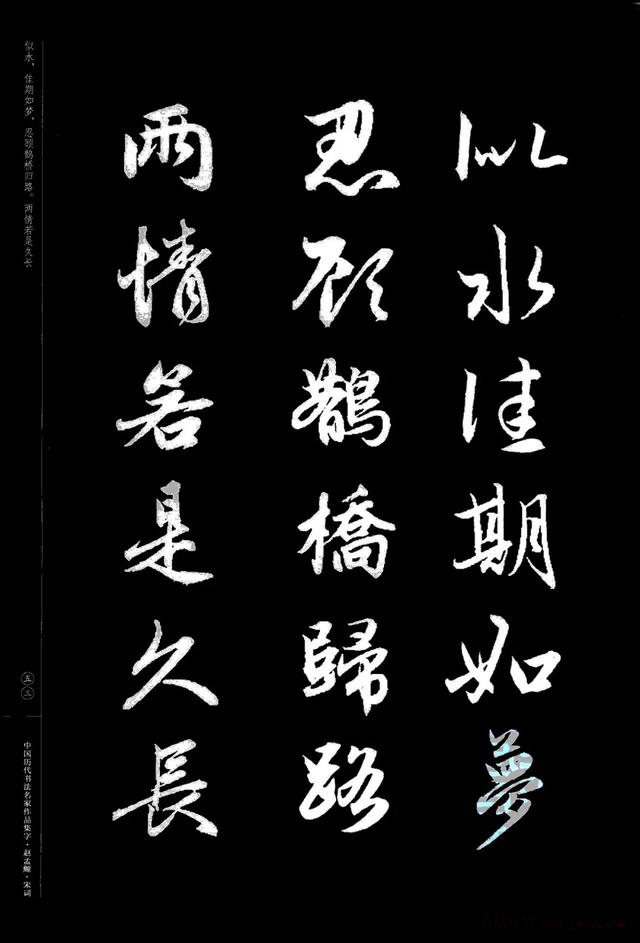 似水佳期如夢
忍顧鵲橋歸路
兩情若是久長
似水，佳期如梦，忍顾鹊桥归路。两情若是久长
五三
中国历代书法名家作品集字·赵孟頫·宋词